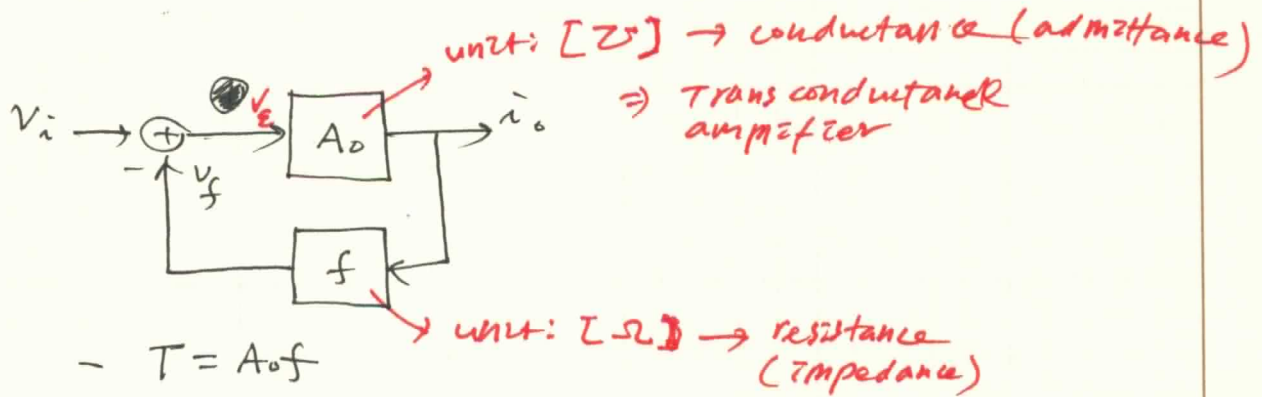 unit: [℧] → conductance (admittance)
⇒ Transconductance
ampifier
Vi → + Vε A₀ → i₀
- vf
f
unit: [Ω] → resistance
(impedance)
- T = A₀f